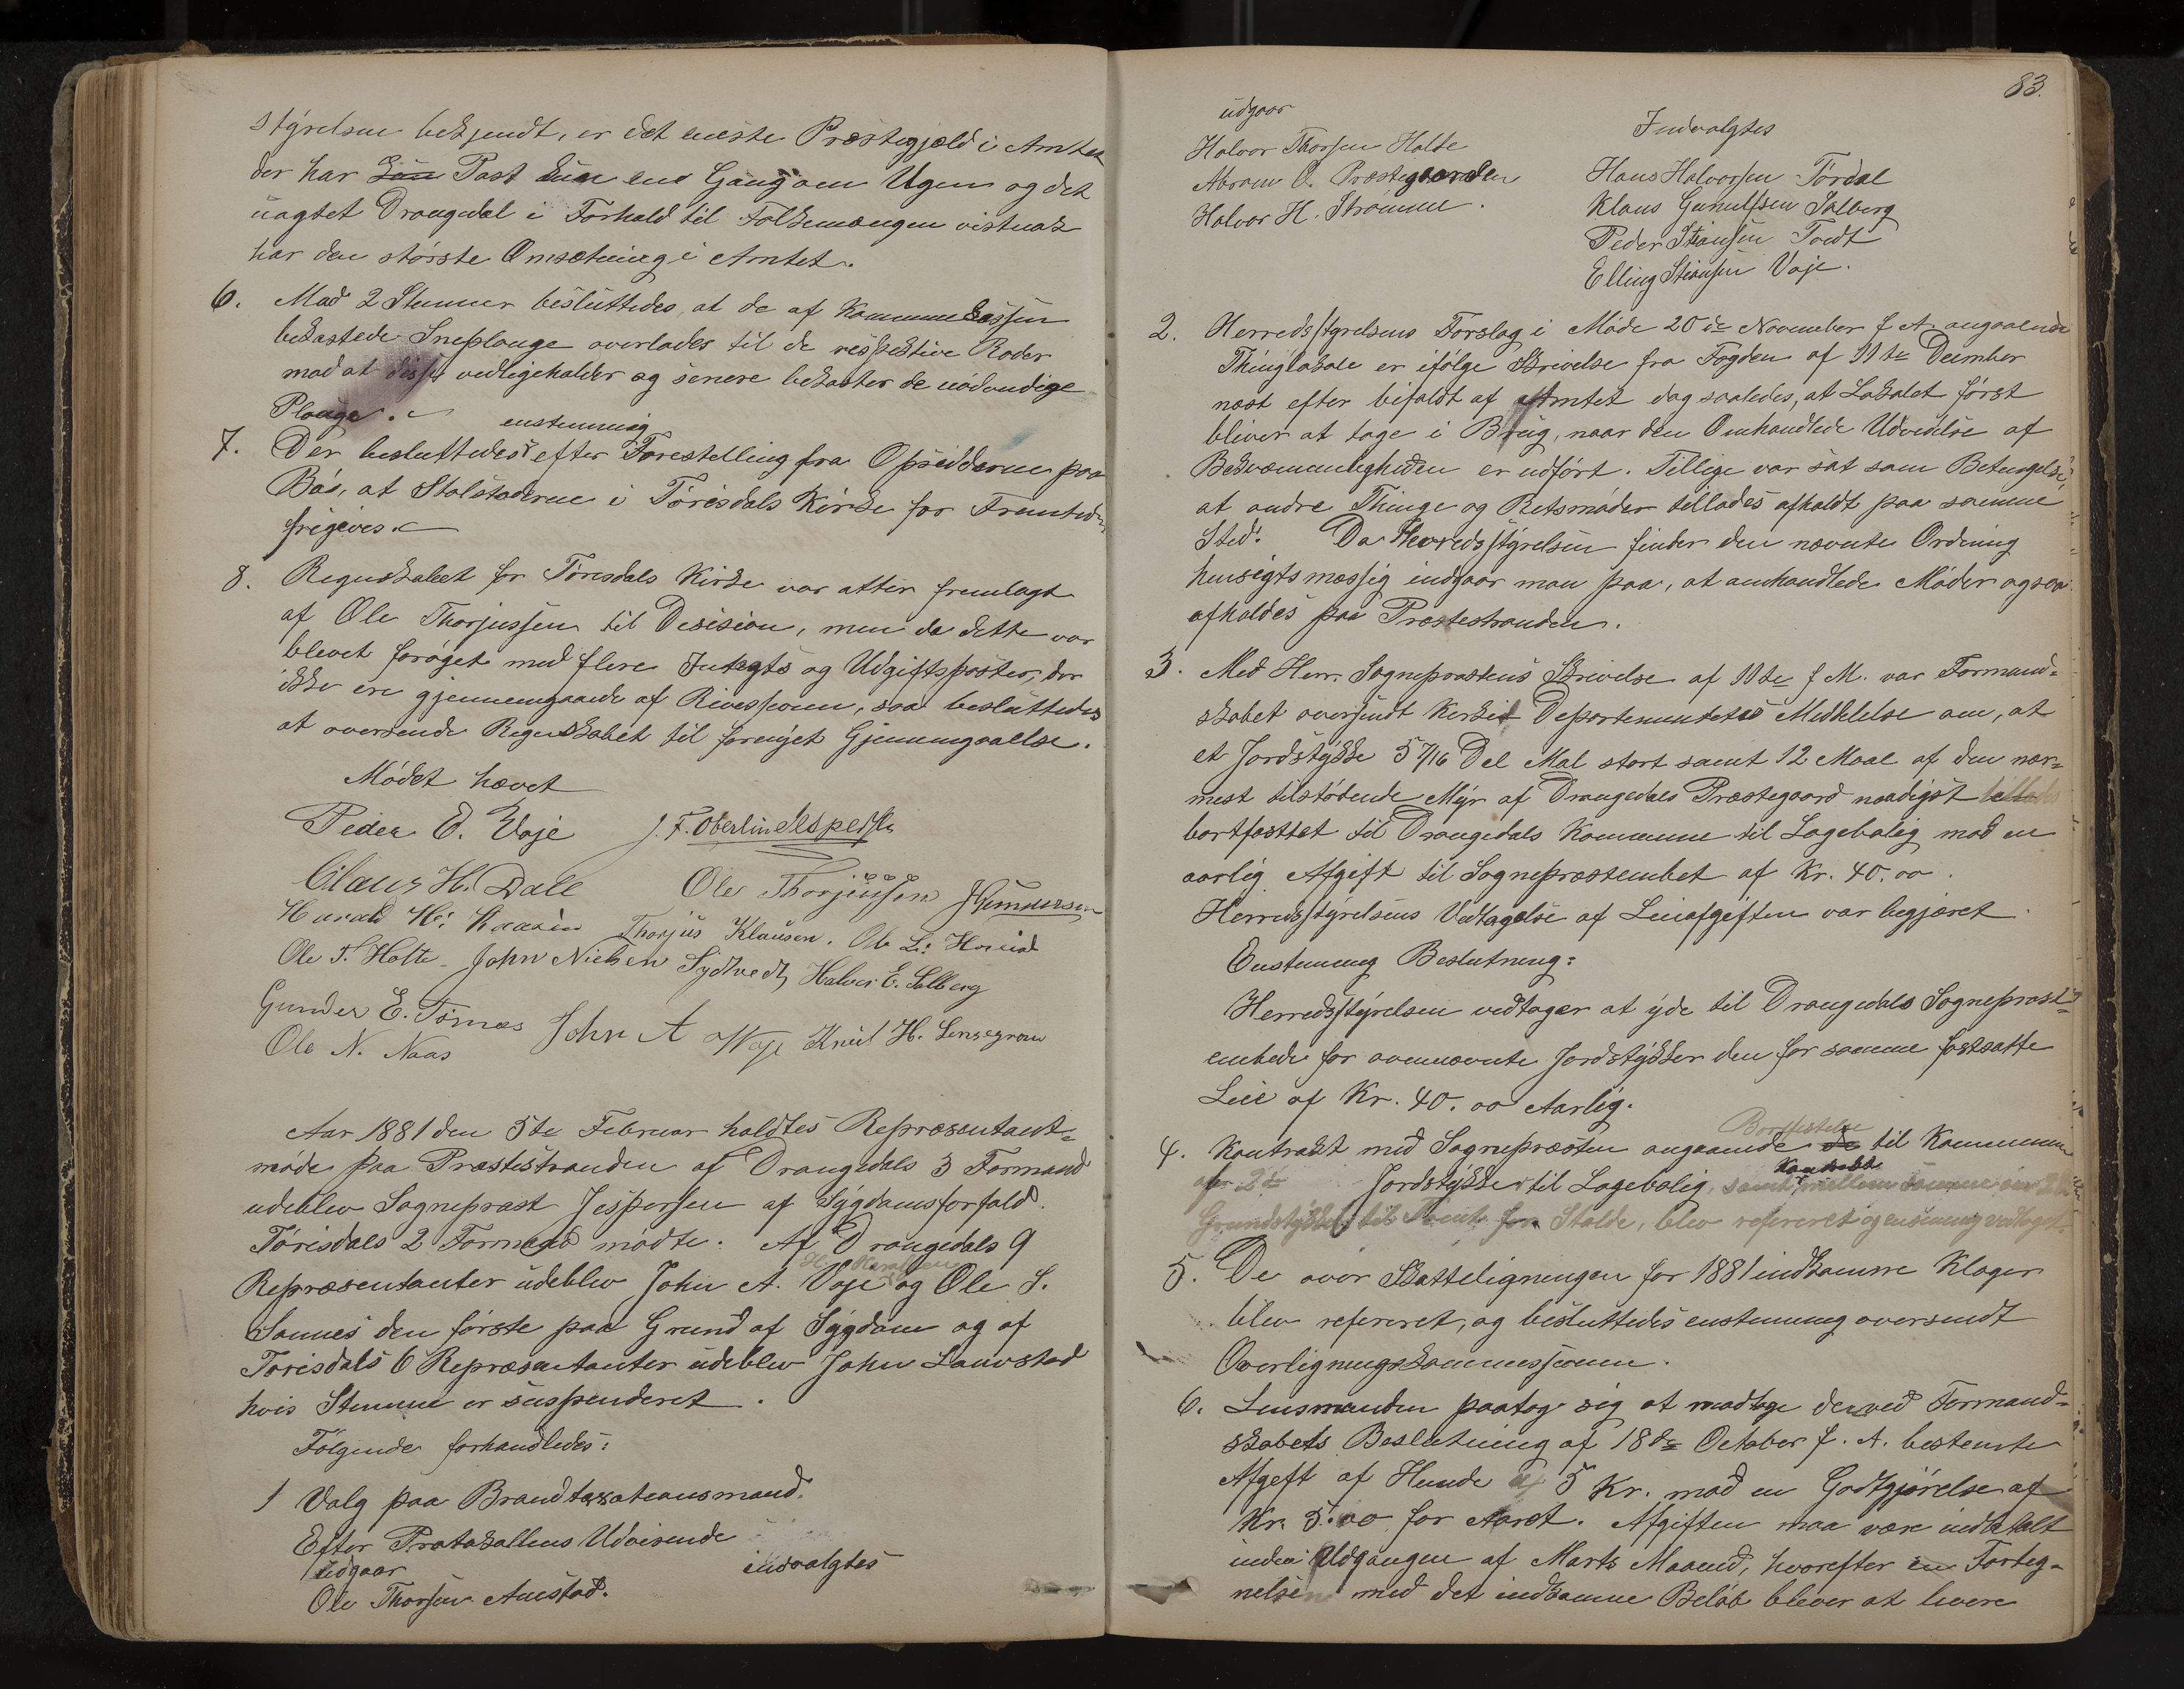 styrelsen bekjendt, er det eneste Præstegjeld i Amtet
der har kun Post kun en Gang om Ugen og det
uagtet Drangedal i Forhold til Folkemængen vistnok
har den største Omsætning i Amtet.
6. Mod 2 Stemmer besluttedes, at de af Kommunekassen
bekostede Sneplouge overlades til de respektive Roder
mod at disse vedligeholder og senere bekoster de nødvendige
Plouge.
enstemmig
7. Der besluttedes efter Forestilling fra Opsidderne paa
Bø, at Stolstaderne i Tørisdals Kirke for Fremtiden
frigives.
8. Regnskabet for Tørisdals Kirke var atter fremlagt
af Ole Thorjussen til Desision, men da dette var
blevet forøget med flere Integts og Udgiftsposter, der
ikke ere gjennemgaaede af Rivessionen, saa besluttedes
at oversende Regnskabet til fornyet Gjennemgaaelse.
Mødet hævet
Peder E. Voje J. F. Oberlin Jespersen
Claus H. Dale Ole Thorjussen J Gundersen
Harald H. Kaasin Thorjus Klausen. Ole L:
Ole T. Holte John Nielsen Sydtvedt Halvor E. Solberg
Gunder E. Tornes John A Woje Knut H. Lensegrav
Ole N. Naas
Aar 1881 den 5te Februar holdtes Repræsentant-
møde paa Præstestranden af Drangedals 3 Formænd
udeblev Sogneprest Jespersen af Sygdomsforfald.
Tørisdals 2 Formænd mødte. Af Drangedals 9
Repræsentanter udeblev John A. Voje og Ole S.
Sannes den første paa Grund af Sygdom og af
Torisdals 6 Repræsentanter udeblev John Lauvstad
hvis Stemme er suspenderet.
Følgende forhandledes:
1 Valg paa Brandtaxationsmænd.
Efter Protokollens Udvisende
udgaar indvalgtes
Ole Thorsen Austad.
83.
udgaar Indvalgtes
Halvor Thorsen Holte
Abram O. Præstegaarden Hans Halvorsen Tørdal
Halvor H. Strømme. Klaus Gunulfsen Solberg
Peder Stiansen Tvedt
Elling Stiansen Voje.
2. Herredsstyrelsens Forslag i Møde 20de November f A. angaaende
Thinglokale er ifølge Skrivelse fra Fogden af 11te December
næst efter bifaldt af Amtet dog saaledes, at Lokalet først
bliver at tage i Brug, naar den Omhandlede Udvidelse af
Bekvæmmeligheden er udført. Tillige var sat som Betingelse,
at andre Thinge og Retsmøder tillades afholdt paa samme
Sted. Da Herredsstyrelsen finder den nævnte Ordning
hensigtsmæssig indgaar man paa, at omhandlede Møder ogsaa
afholdes paa Præstestranden.
3. Med Herr. Sogneprestens Skrivelse af 11te f M. var Formand-
skabet oversendt Kirke Departementets Meddelelse om, at
et Jordstykke 5 7/16 Del Mal stort samt 12 Maal af den nær-
mest tilstødende Myr af Drangedals Præstegaard naadigst tillades
bortfæstet til Drangedals Kommune til Lægebolig mod en
aarlig Afgift til Sogneprestembet af Kr. 40.00.
Herredsstyrelsens Vedtagelse af Leieafgiften var begjæret.
Enstemmig Beslutning:
Herredsstyrelsen vedtager at yde til Drangedals Sogneprest-
embede for ovennævnte Jordstykker den for samme fastsatte
Leie af Kr. 40.00 Aarlig.
Bortfæstelse
4. Kontrakt med Sognepræsten angaaende de til Kommunen
Kontrakt
af 2de Jordstykker til Lægebolig, samt mellem samme om
Grundstykke til for Stalde, blev refereret og enstemmig vedtaget.
5. De over Skatteligningen for 1881 indkomne Klager
blev refereret, og besluttedes enstemmig oversendt
Overligningskommissionen.
6. Lensmanden paatog sig at modtage den ved Formand-
skabets Beslutning af 18de October f. A. bestemte
Afgift af Hunde af 5 Kr. mod en Godtgjørelse af
Kr. 5.00 for Aaret. Afgiften maa være indbetalt
inden Udgangen af Marts Maaned, hvorefter en Forteg-
nelse med det indkomne Beløb bliver at levere